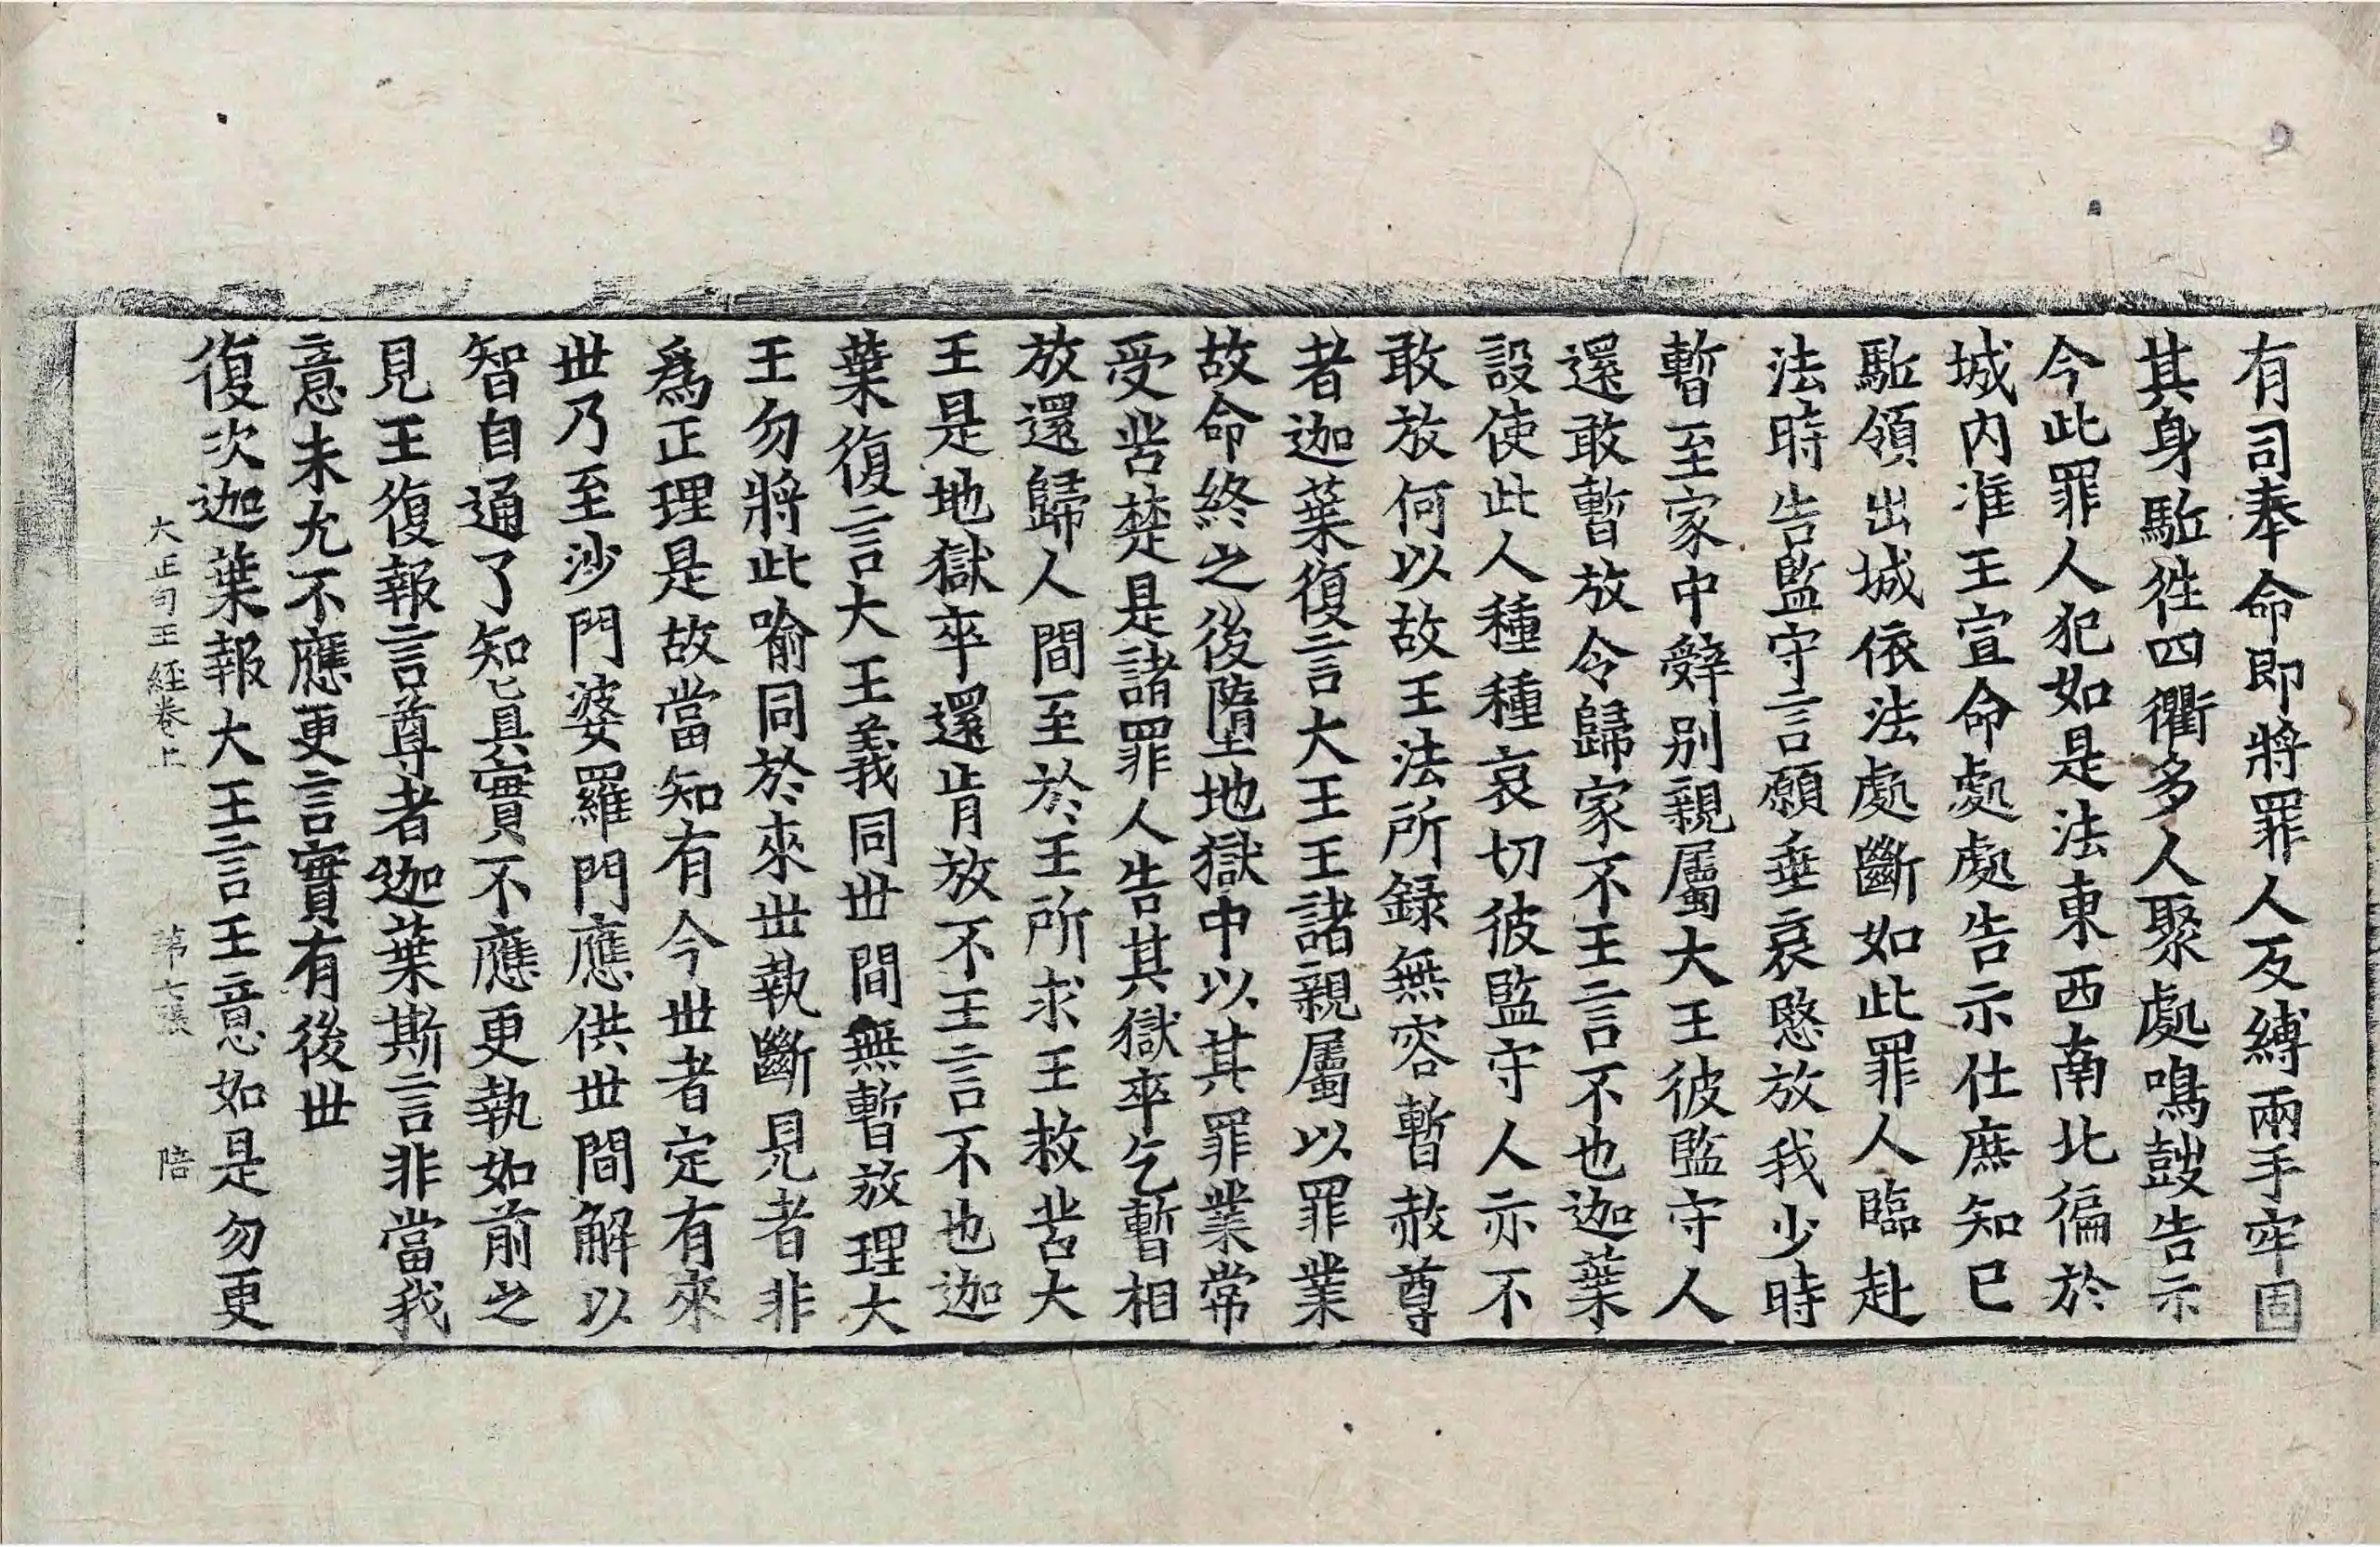 有司奉命即將罪人反縛兩手牢固
其身駈徃四衢多人聚處鳴鼓告示
今此罪人犯如是法東西南北徧於
城内准王宣命處處告示仕庶知已
駈領出城依法處斷如此罪人臨赴
法時告監守言願垂哀愍放我少時
暫至家中辤別親屬大王彼監守人
還敢暫放令歸家不王言不也迦葉
設使此人種種哀切彼監守人亦不
敢放何以故王法所録無容暫赦尊
者迦葉復言大王王諸親屬以罪業
故命終之後墮地獄中以其罪業常
受苦楚是諸罪人告其獄卒乞暫相
放還歸人間至於王所求王救苦大
王是地獄卒還肯放不王言不也迦
葉復言大王義同世間無暫放理大
王勿將此喻同於來世執斷見者非
爲正理是故當知有今世者定有來
世乃至沙門婆羅門應供世間解以
智自通了知眞實不應更執如前之
見王復報言尊者迦葉斯言非當我
意未允不應更言實有後世
復次迦葉報大王言王意如是勿更
大正句王經卷上 第七張 陪